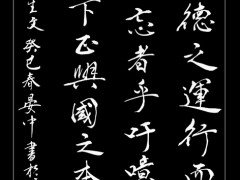 德之運行而
忘者乎吁噫
下正與國之本
生文癸巳春晏中書於